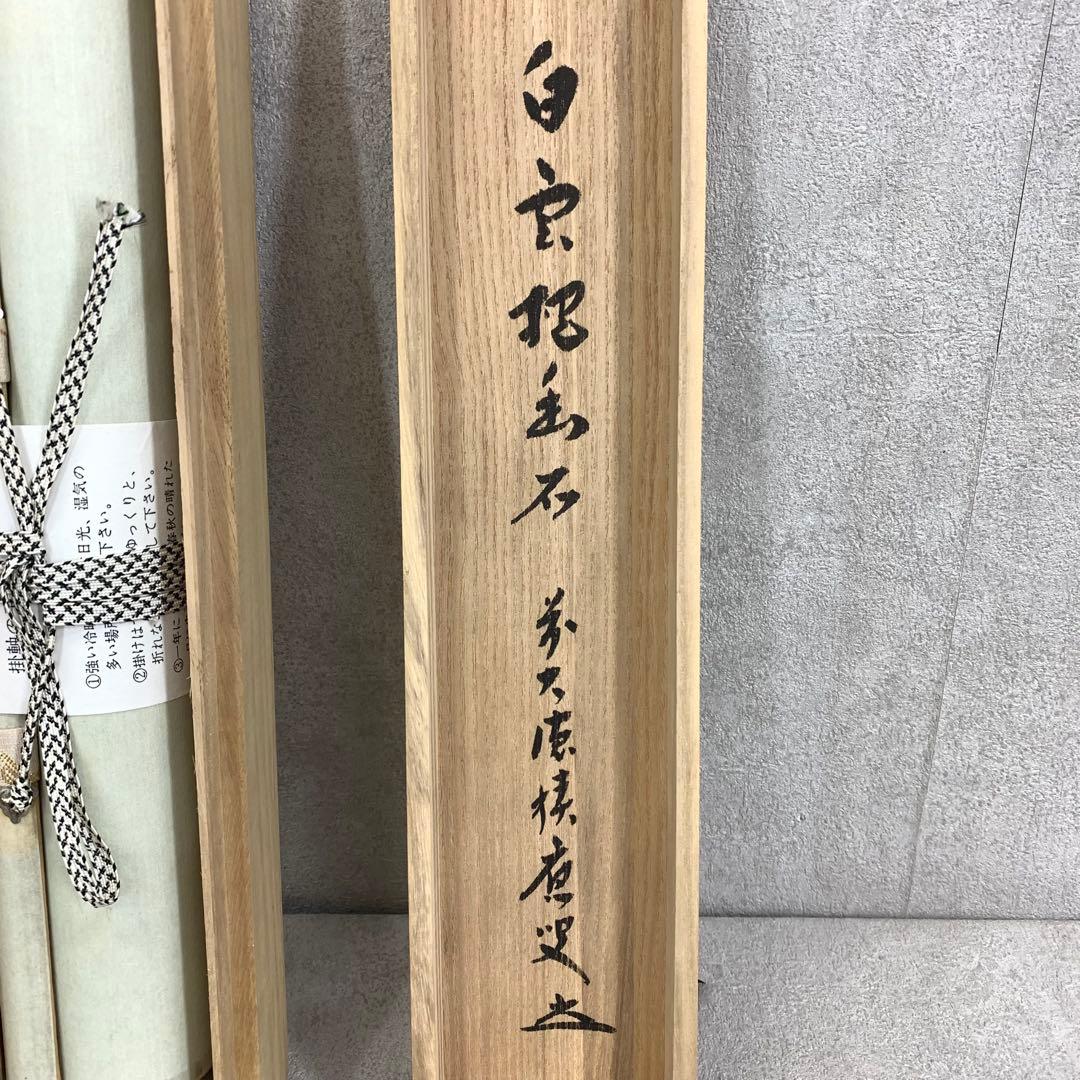 白雲抱幽石
前大徳積應叟
掛軸の
①強い冷 日光、湿気の
多い場所 下さい。
②掛けは ゆっくりと、
折れな して下さい。
③一年に 春秋の晴れた